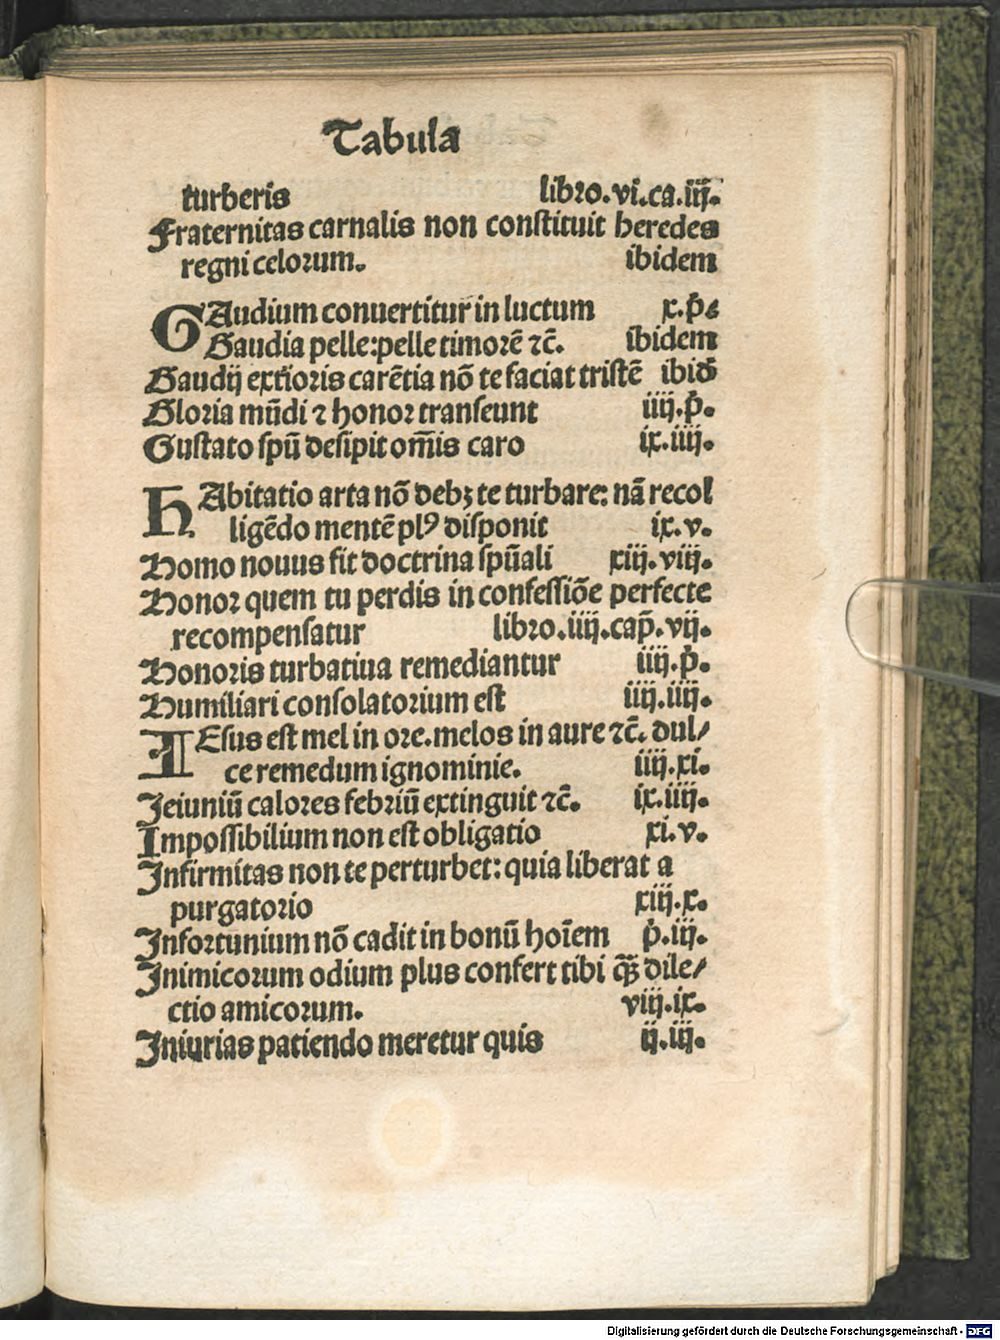 Tabula
turberis libro.vi.ca.iij.
Fraternitas carnalis non constituit heredes
regni celorum. ibidem
GAudium conuertitur in luctum x.p̄.
Gaudia pelle:pelle timorē ⁊c̄. ibidem
Gaudij ext̄ioris carētia nō te faciat tristē ibid̄
Gloria mūdi ⁊ honor transeunt iiij.p̄.
Gustato spū desipit om̄is caro ix.iiij.
HAbitatio arta nō debꝫ te turbare: nā recol
ligēdo mentē plꝰ disponit ix.v.
Homo nouus fit doctrina spūali xiij.viij.
Honor quem tu perdis in confessiōe perfecte
recompensatur libro.iiij.cap̄.vij.
Honoris turbatiua remediantur iiij.p̄.
Humiliari consolatorium est iiij.iiij.
IEsus est mel in ore.melos in aure ⁊c̄. dul/
ce remedum ignominie. iiij.xi.
Jeiuniū calores febriū extinguit ⁊c̄. ix.iiij.
Impossibilium non est obligatio xi.v.
Infirmitas non te perturbet: quia liberat a
purgatorio xiij.x.
Infortunium nō cadit in bonū hoīem p̄.iij.
Inimicorum odium plus confert tibi q̄ꝫ dile/
ctio amicorum. viij.ix.
Iniurias patiendo meretur quis ij.iij.
Digitalisierung gefördert durch die Deutsche Forschungsgemeinschaft - DFG